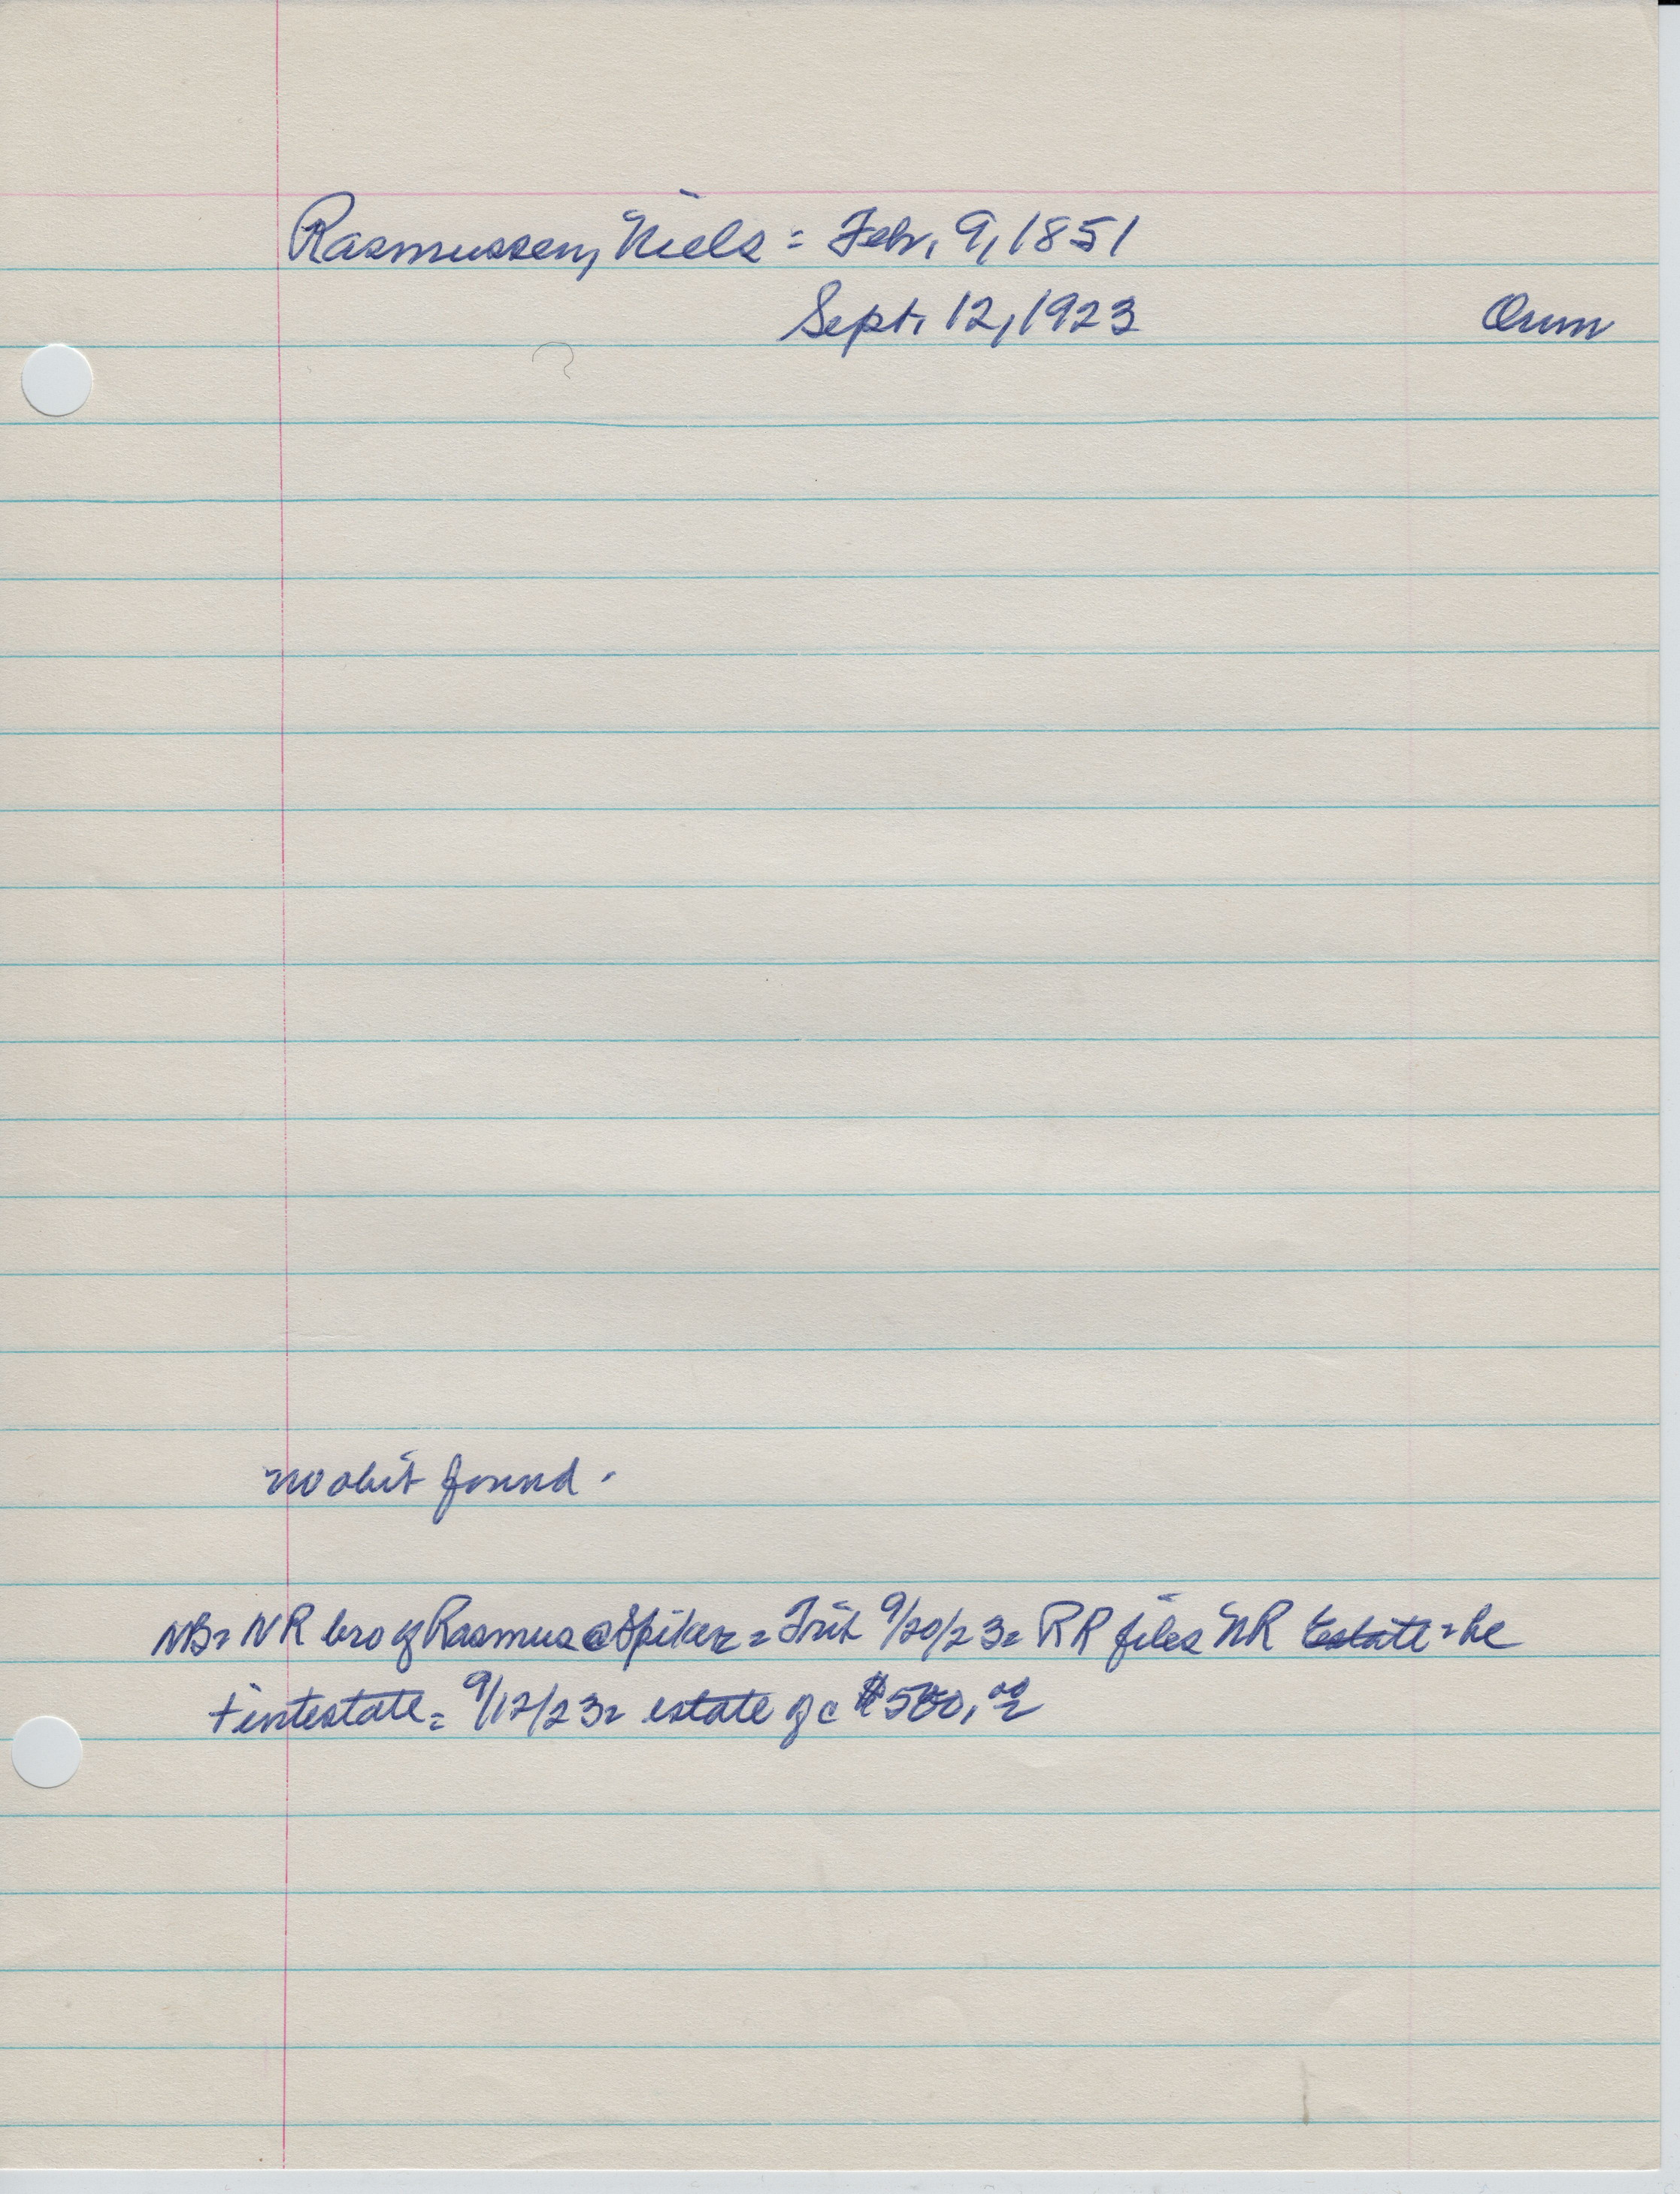 Rasmussen, Niels = Feb. 9, 1851
Sept. 12, 1923 Orum
no obit found.
NB = NR bro of Rasmus @ Spiker = Trib 9/20/23 = RR files NR estate = he
+ intestate = 9/12/23 = estate of c $500.00